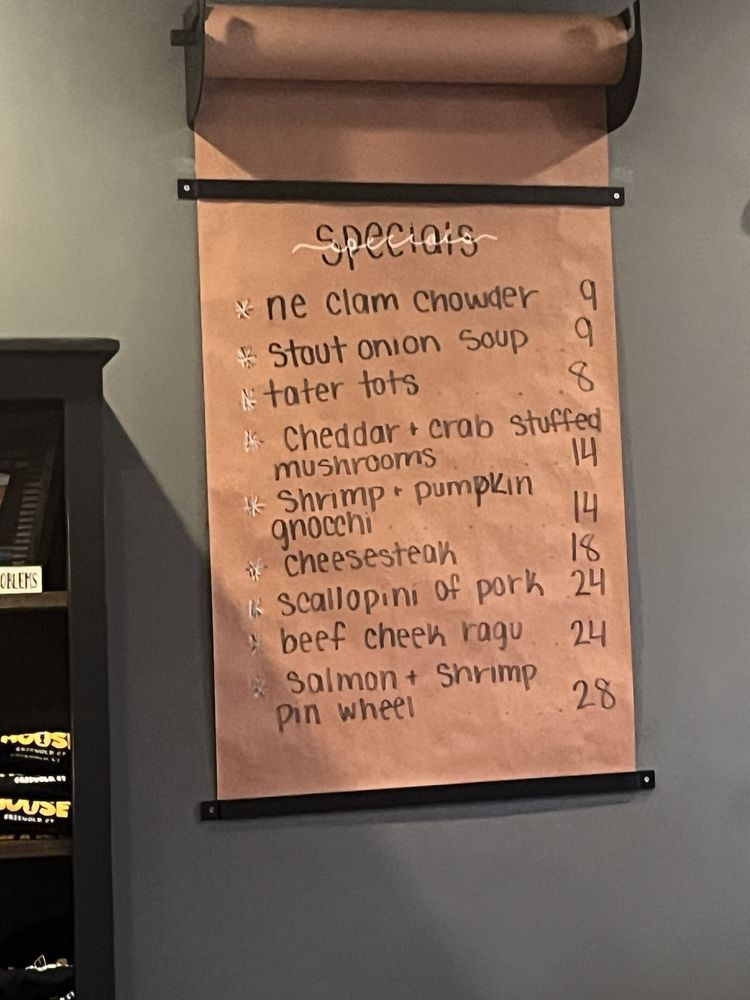 Specials
specials
* ne clam chowder 9
* Stout onion soup 9
* tater tots 8
* Cheddar + crab stuffed
mushrooms 14
* Shrimp + pumpkin
gnocchi 14
* cheesesteak 18
* scallopini of pork 24
* beef cheek ragu 24
* Salmon + Shrimp
pin wheel 28
OBLEMS
GRISWOLD CT
GRISWOLD CT